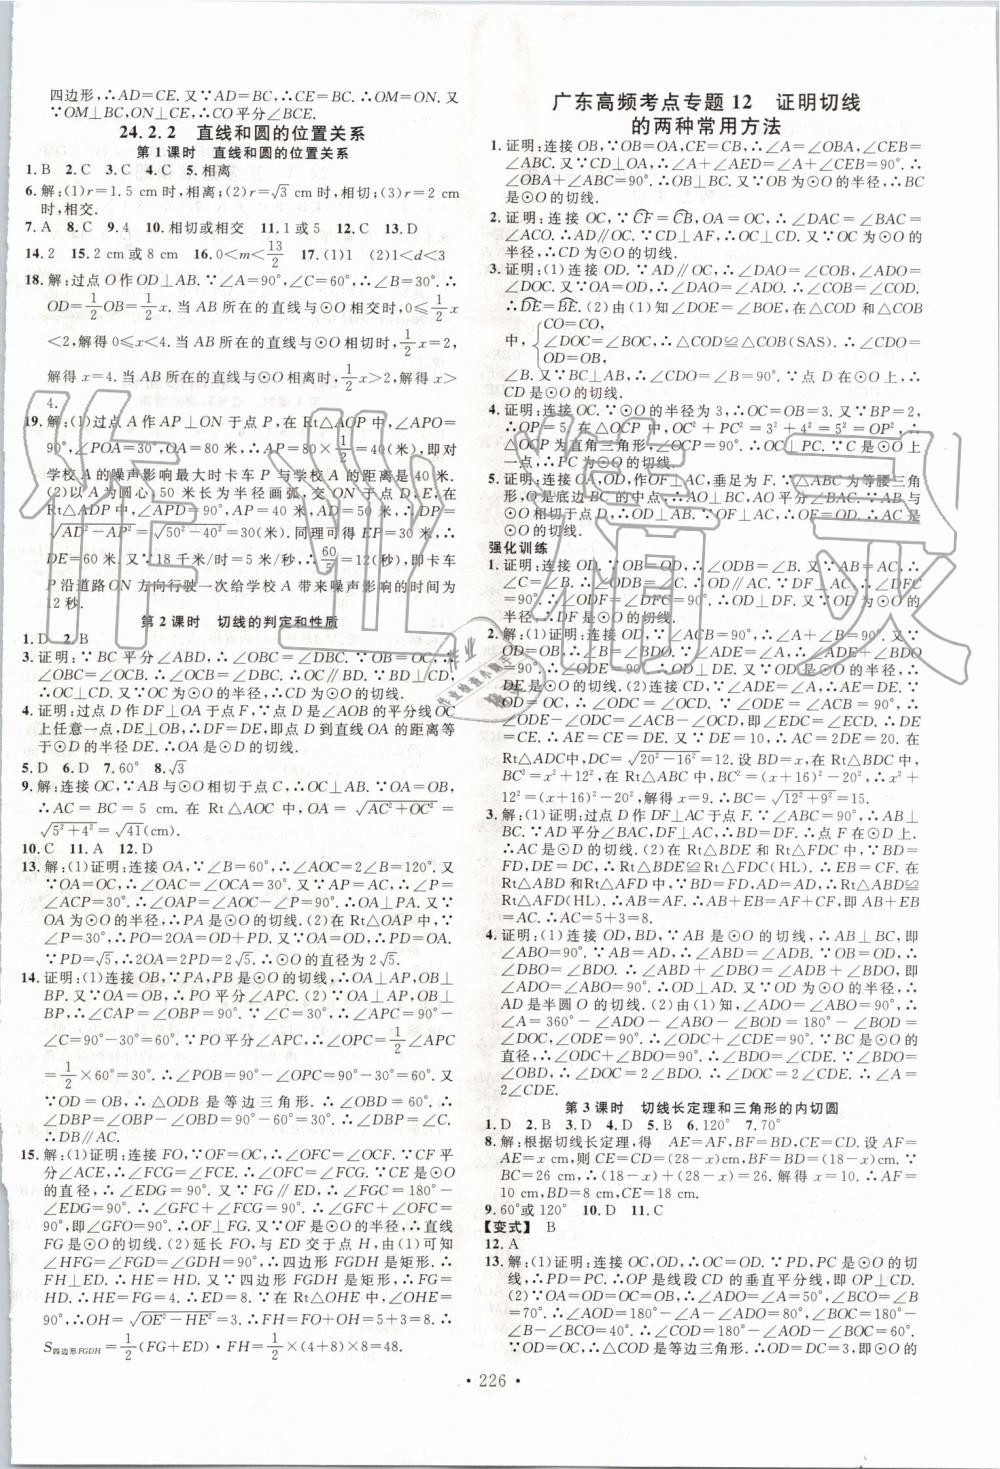 四边形,∴AD=CE.又∵AD=BC,∴CE=BC,∴OM=ON.又
∵OM⊥BC,ON⊥CE,∴CO平分∠BCE.
24.2.2 直线和圆的位置关系
第1课时 直线和圆的位置关系
1.B 2.C 3.C 4.C 5.相离
6.解:(1)r=1.5 cm时,相离;(2)r=√3 cm时,相切;(3)r=2 cm
时,相交.
7.A 8.C 9.4 10.相切或相交 11.1或5 12.C 13.D
14.2 15.2 cm或8 cm 16.0<m<13/2 17.(1)1 (2)1<d<3
18.解:过点O作OD⊥AB.∵∠A=90°,∠C=60°,∴∠B=30°.∴
OD=1/2OB=1/2x.当AB所在的直线与⊙O相交时,0≤1/2x
<2,解得0≤x<4.当AB所在的直线与⊙O相切时,1/2x=2,
解得x=4.当AB所在的直线与⊙O相离时,1/2x>2,解得x>
4.
19.解:(1)过点A作AP⊥ON于点P,在Rt△AOP中,∠APO=
90°,∠POA=30°,OA=80米,∴AP=80×1/2=40(米),即对
学校A的噪声影响最大时卡车P与学校A的距离是40米.
(2)以A为圆心,50米长为半径画弧,交ON于点D,E,在
Rt△ADP中,∠APD=90°,AP=40米,AD=50米,∴DP=
√AD²-AP²=√50²-40²=30(米).同理可得EP=30米,∴
DE=60米.又∵18千米/时=5米/秒,∴60/5=12(秒),即卡车
P沿道路ON方向行驶一次给学校A带来噪声影响的时间为
12秒.
第2课时 切线的判定和性质
1.D 2.B
3.证明:∵BC平分∠ABD,∴∠OBC=∠DBC.∵OB=OC,∴
∠OBC=∠OCB.∴∠DBC=∠OCB.∴OC∥BD.∵BD⊥
CD,∴OC⊥CD.又∵OC为⊙O的半径,∴CD为⊙O的切线.
4.证明:过点D作DF⊥OA于点F,∵点D是∠AOB的平分线OC
上任意一点,DE⊥OB,∴DF=DE,即点D到直线OA的距离等
于⊙D的半径DE.∴OA是⊙D的切线.
5.D 6.D 7.60° 8.√3
9.解:连接OC,∵AB与⊙O相切于点C,∴OC⊥AB.∵OA=OB,
∴AC=BC=5 cm.在Rt△AOC中,OA=√AC²+OC²=
√5²+4²=√41(cm).
10.C 11.A 12.D
13.解:(1)证明:连接OA,∵∠B=60°,∴∠AOC=2∠B=120°.又
∵OA=OC,∴∠OAC=∠ACP=30°.又∵AP=AC,∴∠P=
∠ACP=30°.∴∠OAP=∠AOC-∠P=90°.∴OA⊥PA.又∵
OA为⊙O的半径,∴PA是⊙O的切线.(2)在Rt△OAP中,
∵∠P=30°,∴PO=2OA=OD+PD.又∵OA=OD,∴PD=OA.
∵PD=√5,∴2OA=2PD=2√5.∴⊙O的直径为2√5.
14.证明:(1)连接OB,∵PA,PB是⊙O的切线,∴OA⊥AP,OB⊥
BP.又∵OA=OB,∴PO平分∠APC.(2)∵OA⊥AP,OB⊥
BP,∴∠CAP=∠OBP=90°.∵∠C=30°,∴∠APC=90°-
∠C=90°-30°=60°.∵PO平分∠APC,∴∠OPC=1/2∠APC
=1/2×60°=30°.∴∠POB=90°-∠OPC=90°-30°=60°.又
∵OD=OB,∴△ODB是等边三角形.∴∠OBD=60°.∴
∠DBP=∠OBP-∠OBD=90°-60°=30°.∴∠DBP=∠C.
∴DB∥AC.
15.解:(1)证明:连接FO,∵OF=OC,∴∠OFC=∠OCF.∵CF平
分∠ACE,∴∠FCG=∠FCE.∴∠OFC=∠FCG.∵CE是⊙O
的直径,∴∠EDG=90°.又∵FG∥ED,∴∠FGC=180°-
∠EDG=90°.∴∠GFC+∠FCG=90°.∴∠GFC+∠OFC=
90°,即∠GFO=90°.∴OF⊥GF.又∵OF是⊙O的半径,∴直线
FG是⊙O的切线.(2)延长FO,与ED交于点H,由(1)可知
∠HFG=∠FGD=∠GDH=90°,∴四边形FGDH是矩形.∴
FH⊥ED.∴HE=HD.又∵四边形FGDH是矩形,∴FG=
HD.∴HE=FG=4.∴ED=8.∵在Rt△OHE中,∠OHE=
90°,∴OH=√OE²-HE²=3.∴FH=FO+OH=5+3=8.∴
S四边形FGDH=1/2(FG+ED)·FH=1/2×(4+8)×8=48.
广东高频考点专题12 证明切线
的两种常用方法
1.证明:连接OB,∵OB=OA,CE=CB,∴∠A=∠OBA,∠CEB=
∠ABC.又∵CD⊥OA,∴∠A+∠AED=∠A+∠CEB=90°.∴
∠OBA+∠ABC=90°.∴OB⊥BC.又∵OB是⊙O的半径,∴BC
是⊙O的切线.
2.证明:连接OC,∵CF=CB,OA=OC,∴∠DAC=∠BAC=
∠ACO.∴AF∥OC.又∵CD⊥AF,∴OC⊥CD.又∵OC为⊙O
的半径,∴CD为⊙O的切线.
3.证明:(1)连接OD.∵AD∥OC,∴∠DAO=∠COB,∠ADO=
∠DOC.又∵OA=OD,∴∠DAO=∠ADO.∴∠COB=∠COD.
∴DE=BE.(2)由(1)知∠DOE=∠BOE,在△COD和△COB
中,{CO=CO,
∠DOC=∠BOC,∴△COD≌△COB(SAS).∴∠CDO=
OD=OB,
∠B.又∵BC⊥AB,∴∠CDO=∠B=90°.∵点D在⊙O上,∴
CD是⊙O的切线.
4.证明:连接OC.∵⊙O的半径为3,∴OC=OB=3.又∵BP=2,
∴OP=5.在△OCP中,OC²+PC²=3²+4²=5²=OP²,∴
△OCP为直角三角形,∠OCP=90°.∴OC⊥PC.∵C是⊙O上
一点,∴PC为⊙O的切线.
5.证明:连接OA,OD,作OF⊥AC,垂足为F.∵△ABC为等腰三角
形,O是底边BC的中点,∴AO⊥BC,AO平分∠BAC.∵AB与
⊙O相切于点D,∴OD⊥AB.又∵OF⊥AC,∴OF=OD.∴AC是
⊙O的切线.
强化训练
1.证明:连接OD.∵OB=OD,∴∠ODB=∠B.又∵AB=AC,∴
∠C=∠B.∴∠ODB=∠C.∴OD∥AC.∵DF⊥AC,∴∠DFC
=90°.∴∠ODF=∠DFC=90°.∴OD⊥DF.又∵OD为⊙O的半
径,∴DF为⊙O的切线.
2.解:(1)证明:连接OD,∵∠ACB=90°,∴∠A+∠B=90°.又∵OD
=OB,∴∠B=∠BDO.∵∠ADE=∠A,∴∠ADE+∠BDO=90°.∴
∠ODE=90°.∴DE是⊙O的切线.(2)连接CD,∵∠ADE=∠A,∴AE=
DE.∵BC是⊙O的直径,∠ACB=90°.∴EC是⊙O的切线.∴DE=
EC.∴AE=EC.又∵DE=10,∴AC=2DE=20.在
Rt△ADC中,DC=√20²-16²=12.设BD=x,在Rt△BDC中,
BC²=x²+12²,在Rt△ABC中,BC²=(x+16)²-20²,∴x²+
12²=(x+16)²-20²,解得x=9.∴BC=√12²+9²=15.
3.证明:(1)过点D作DF⊥AC于点F.∵∠ABC=90°,∴AB⊥
BC.∵AD平分∠BAC,DF⊥AC,∴BD=DF.∴点F在⊙D上.∴
AC是⊙D的切线.(2)在Rt△BDE和Rt△FDC中,∵BD=
FD,DE=DC,∴Rt△BDE≌Rt△FDC(HL).∴EB=CF.在
Rt△ABD和Rt△AFD中,∵BD=FD,AD=AD,∴Rt△ABD≌
Rt△AFD(HL).∴AB=AF.∴AB+EB=AF+CF=AC,即AB+
EB=AC.∴AC=5+3=8.
4.证明:(1)连接OD,BD,∵AB是⊙O的切线,∴AB⊥BC,即
∠ABO=90°.∵AB=AD,∴∠ABD=∠ADB.∵OB=OD,∴
∠DBO=∠BDO.∴∠ABD+∠DBO=∠ADB+∠BDO.∴
∠ADO=∠ABO=90°.∴OD⊥AD.又∵OD是半圆O的半径,∴
AD是半圆O的切线.(2)由(1)知,∠ADO=∠ABO=90°,∴
∠A=360°-∠ADO-∠ABO-∠BOD=180°-∠BOD=
∠DOC,∠ODE=90°.∴∠ODC+∠CDE=90°.∵BC是⊙O的
直径,∴∠ODC+∠BDO=90°.∴∠BDO=∠CDE.∵∠BDO=
∠OBD,∴∠DOC=2∠BDO.∴∠DOC=2∠CDE.∴∠A
=2∠CDE.
第3课时 切线长定理和三角形的内切圆
1.D 2.B 3.D 4.D 5.D 6.120° 7.70°
8.解:根据切线长定理,得AE=AF,BF=BD,CE=CD.设AF=
AE=x cm,则CE=CD=(28-x)cm,BF=BD=(18-x)cm.∵
BC=26 cm,∴(18-x)+(28-x)=26.解得x=10.∴AF=
10 cm,BD=8 cm,CE=18 cm.
9.60°或120° 10.D 11.C
【变式】 B
12.A
13.解:(1)证明:连接OC,OD,∴OC=OD.∵PD,PC是⊙O的切
线,∴PD=PC.∴OP是线段CD的垂直平分线,∴OP⊥CD.
(2)∵OA=OD=OC=OB=2,∴∠ADO=∠A=50°,∠BCO=∠B
=70°.∴∠AOD=180°-∠A-∠ADO=80°,∠BOC=180°-
∠B-∠BCO=40°.∴∠DOC=180°-∠AOD-∠BOC=60°.
∵OD=OC,∴△COD是等边三角形.∴∠DOC=∠ODC=
·226·